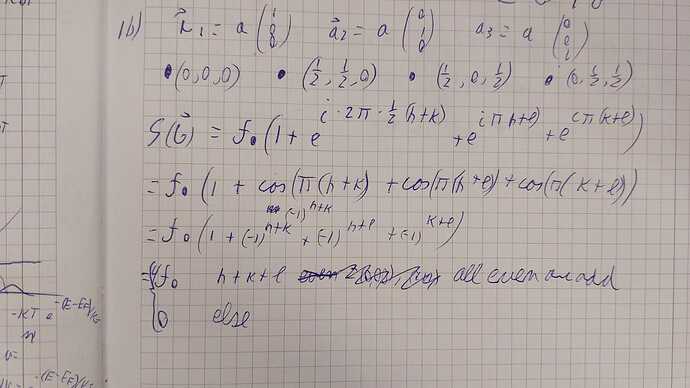 1b) a⃗1 = a (1 0 0) a⃗2 = a (0 1 0) a3 = a (0 0 1)
• (0,0,0) • (1/2, 1/2, 0) • (1/2, 0, 1/2) • (0, 1/2, 1/2)
S(G⃗) = f• (1 + e^{i·2π·1/2(h+k)} + e^{iπ(h+l)} + e^{iπ(k+l)})
= f• (1 + cos(π(h+k) + cos(π(h+l) + cos(π(k+l))
(-1)^{h+k}
= f• (1 + (-1)^{h+k} + (-1)^{h+l} + (-1)^{k+l})
= { 4f• h+k+l all even or odd
0 else
-KT e^{-(E-EF)/KT}
-(E-EF)/KT